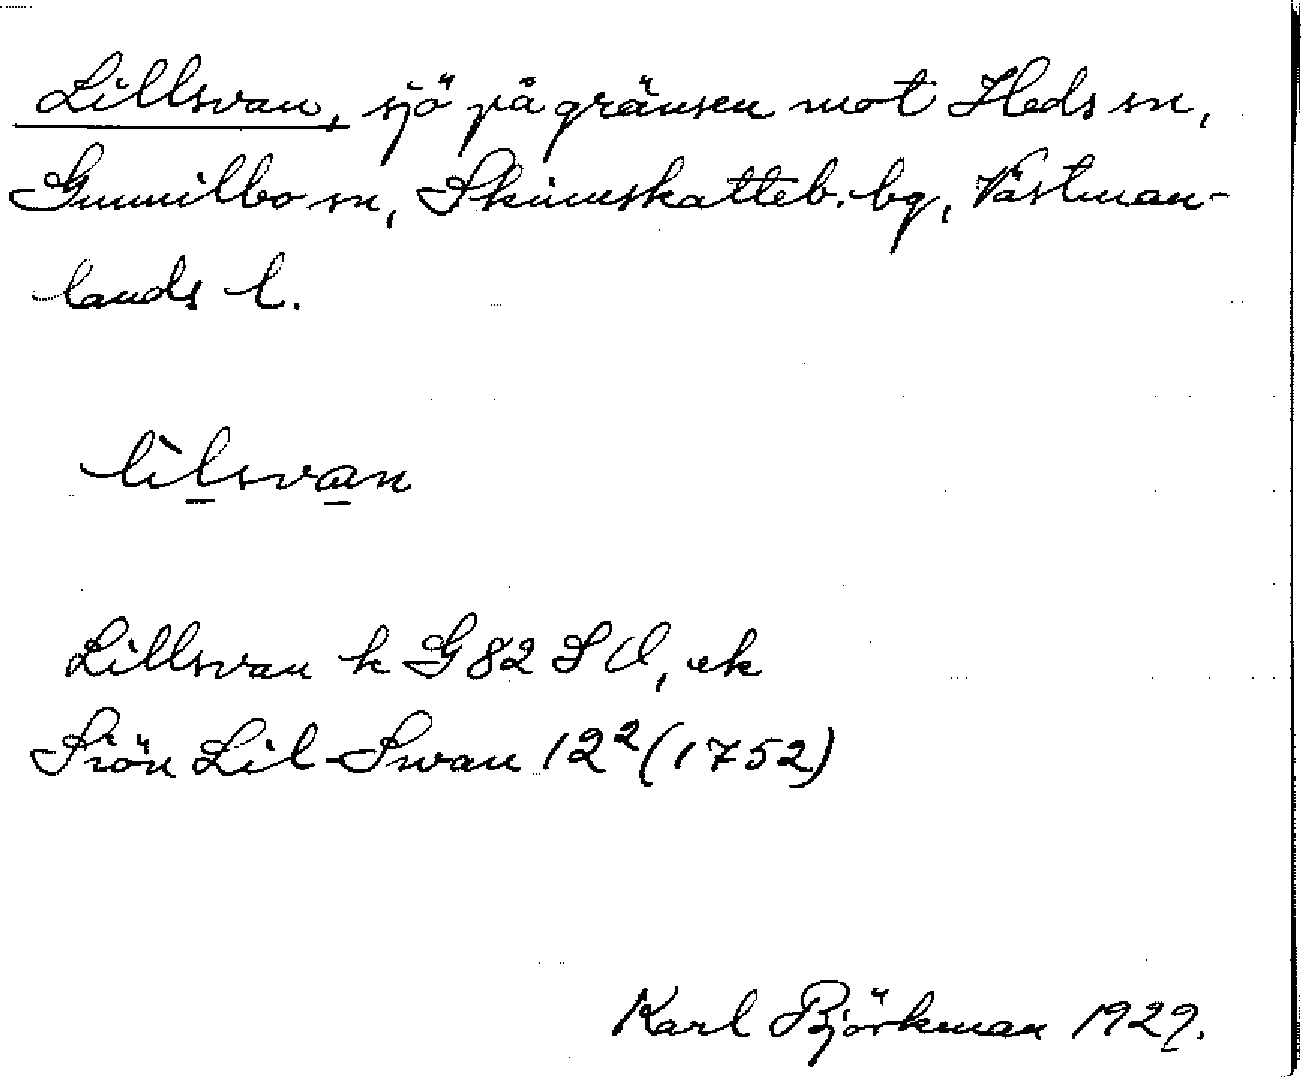 Lillsvan, sjö på gränsen mot Heds sn,
Gunnilbo sn, Skinnskatteb. bg, Västman-
lands l.
lìlsvan
Lillsvan k G 82 SO, ek
Siön Lil-Swan 12² (1752)
Karl Björkman 1929.